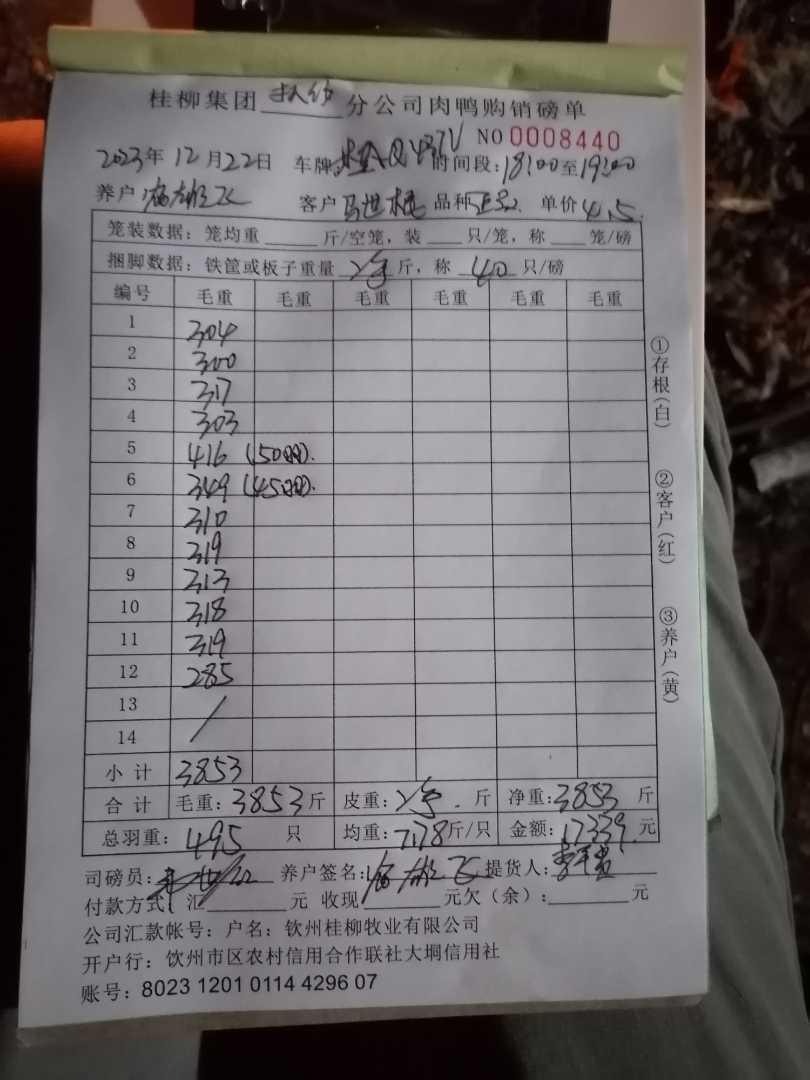 桂柳集团 扶绥 分公司肉鸭购销磅单
NO 0008440
2023年12月22日 车牌: 时间段:18:00至19:00
养户 客户 马世 品种 正品 单价 4.5
笼装数据: 笼均重 斤/空笼, 装 只/笼, 称 笼/磅
捆脚数据: 铁筐或板子重量 斤, 称 40 只/磅
编号 毛重 毛重 毛重 毛重 毛重 毛重
1 304
2 300
3 317
4 303
5 416 (50只).
6 349 (45只).
7 310
8 319
9 313
10 318
11 319
12 285
13 /
14
小 计 3853
合 计 毛重: 3853 斤 皮重: 斤 净重: 3853 斤
总羽重: 495 只 均重: 7.78 斤/只 金额: 17339. 元
司磅员: 养户签名: 提货人:
付款方式: 汇 元 收现 元欠(余): 元
公司汇款帐号: 户名: 钦州桂柳牧业有限公司
开户行: 钦州市区农村信用合作联社大垌信用社
账号: 8023 1201 0114 4296 07
①存根(白)
②客户(红)
③养户(黄)